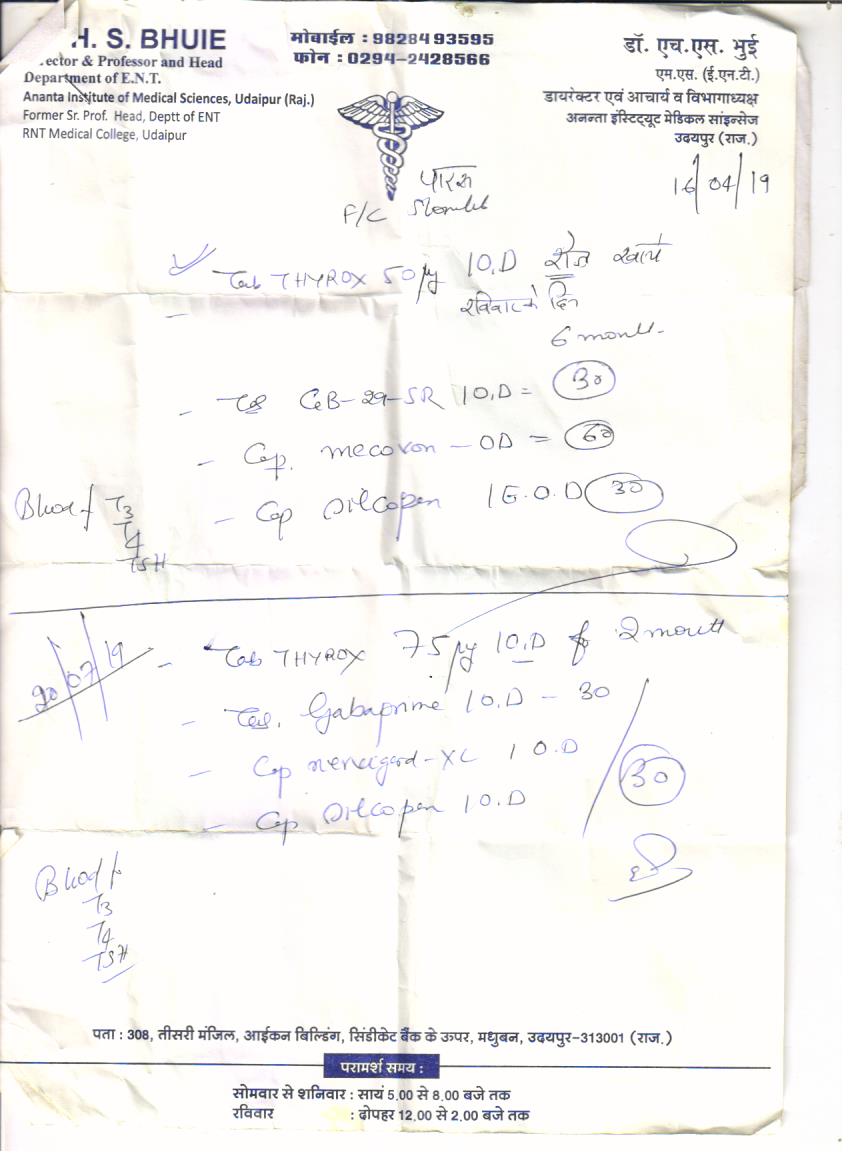 H. S. BHUIE
ector & Professor and Head
Department of E.N.T.
Ananta Institute of Medical Sciences, Udaipur (Raj.)
Former Sr. Prof. Head, Deptt of ENT
RNT Medical College, Udaipur
मोबाईल : 98284 93595
फोन : 0294-2428566
डॉ. एच.एस. भुई
एम.एस. (ई.एन.टी.)
डायरेक्टर एवं आचार्य व विभागाध्यक्ष
अनन्ता इंस्टिट्यूट मेडिकल साइन्सेज
उदयपुर (राज.)
पारस
16/04/19
F/C
Tab THYROX 50 µg 1 O.D रोज खाये
रविवार के दिन
6 month
- Tab 1 O.D = 30
- Cap. mecovon - OD = 60
- Cap Dilcopen 1 O.D 30
Blood f
T3
T4
TSH
20/07/19
- Tab THYROX 75 µg 1 O.D f 2 month
- Tab. Gabaprime 1 O.D - 30
- Cap -XC 1 O.D
30
- Cap Dilcopen 1 O.D
Blood f
T3
T4
TSH
पता : 308, तीसरी मंजिल, आईकन बिल्डिंग, सिंडीकेट बैंक के ऊपर, मधुबन, उदयपुर-313001 (राज.)
परामर्श समय :
सोमवार से शनिवार : सायं 5.00 से 8.00 बजे तक
रविवार : दोपहर 12.00 से 2.00 बजे तक